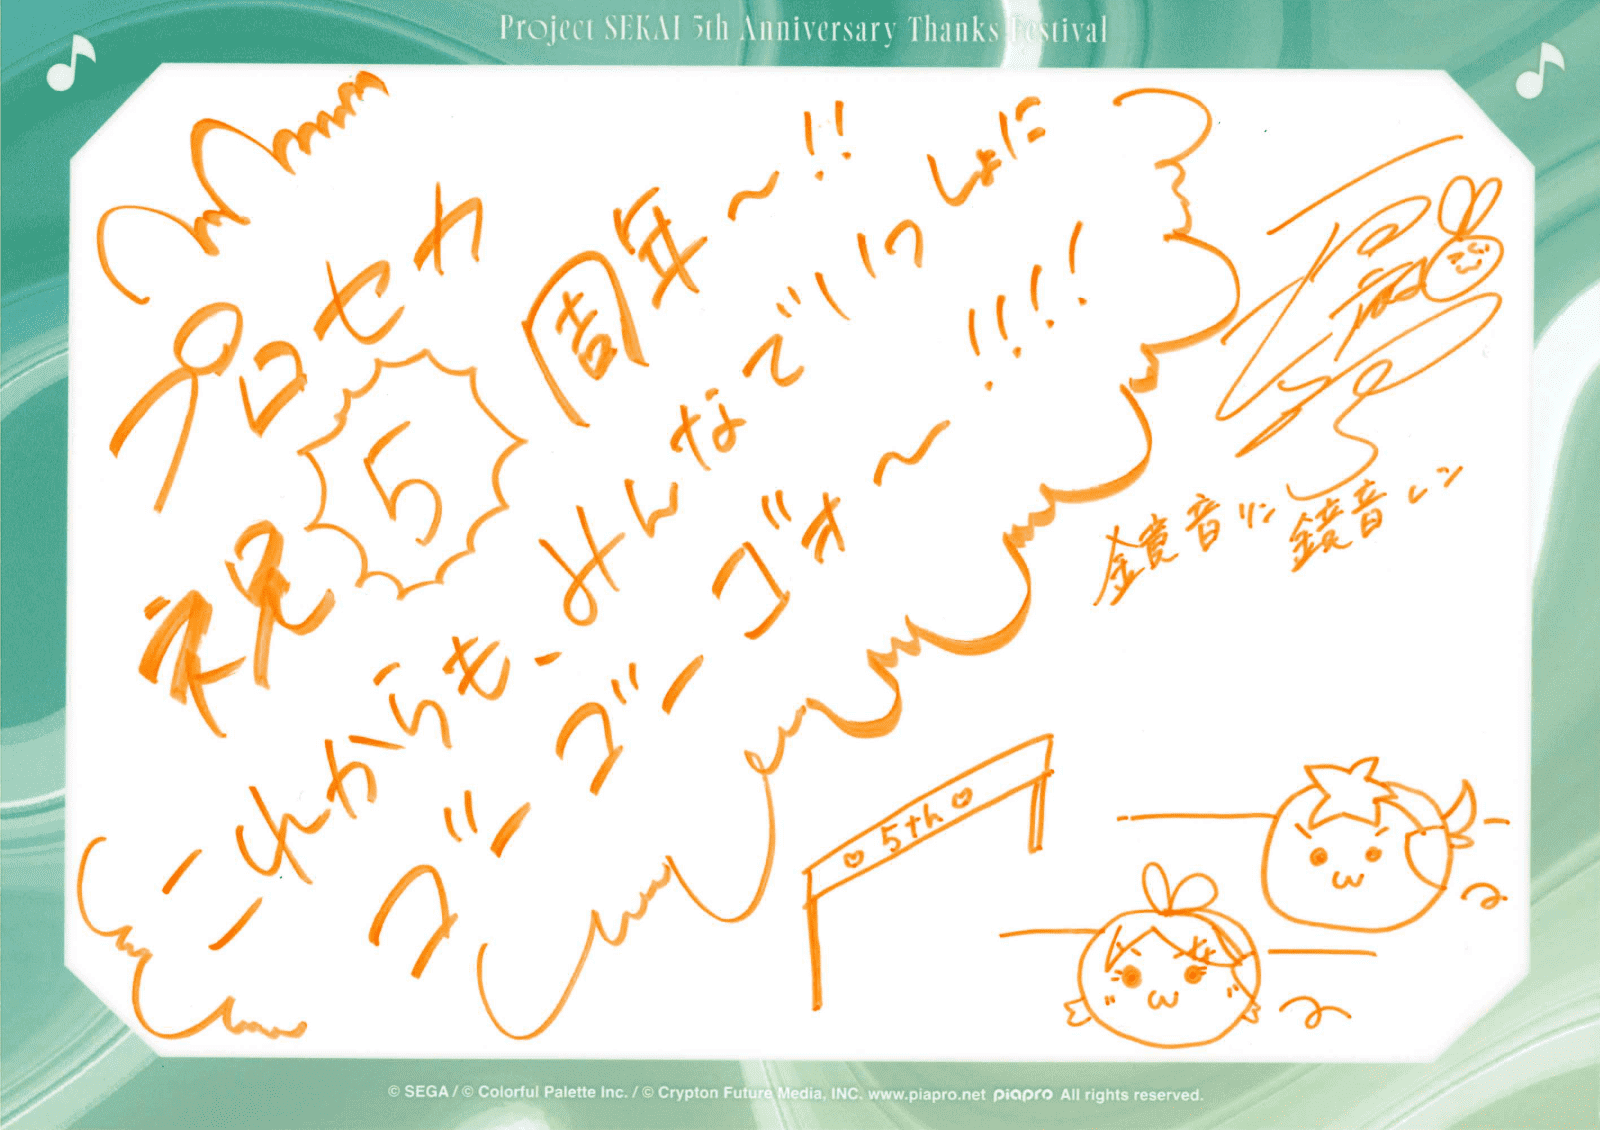 Project SEKAI 5th Anniversary Thanks Festival
プロセカ
祝
5
周年〜!!
これからも、みんなでいつしょに
ゴーゴーゴォ〜!!!!
鏡音リン 鏡音レン
5th
© SEGA / © Colorful Palette Inc. / © Crypton Future Media, INC. www.piapro.net piapro All rights reserved.